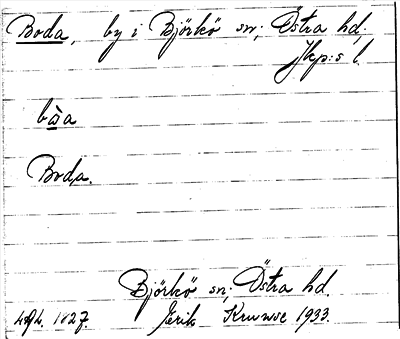 Boda, by i Björkö sn; Östra hd;
Jkp:s l.
bo̱a
Boda.
Björkö sn; Östra hd.
Erik Kruuse 1933.